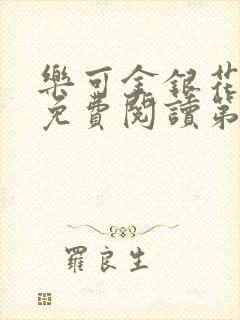 樂可金銀花
免費閱讀第
羅良生